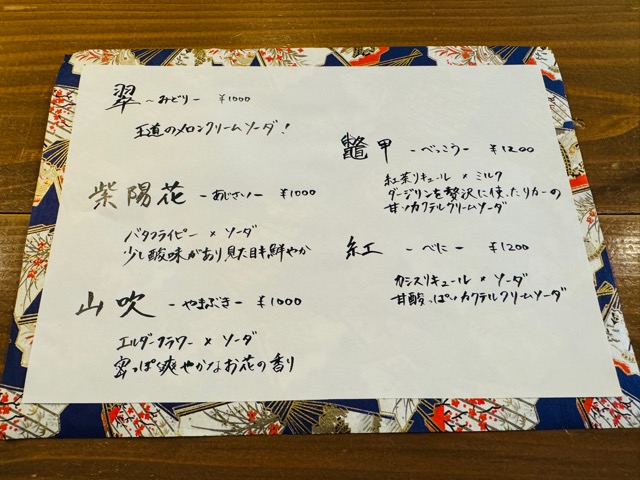 翠 〜みどり〜 ¥1000
王道のメロンクリームソーダ!
紫陽花 -あじさい- ¥1000
バタフライピー × ソーダ
少し酸味があり見た目も鮮やか
山吹 -やまぶき- ¥1000
エルダーフラワー × ソーダ
蜜っぽく爽やかなお花の香り
鼈甲 -べっこう- ¥1200
紅茶リキュール × ミルク
ダージリンを贅沢に使ったリカーの
甘いカクテルクリームソーダ
紅 -べに- ¥1200
カシスリキュール × ソーダ
甘酸っぱいカクテルクリームソーダ